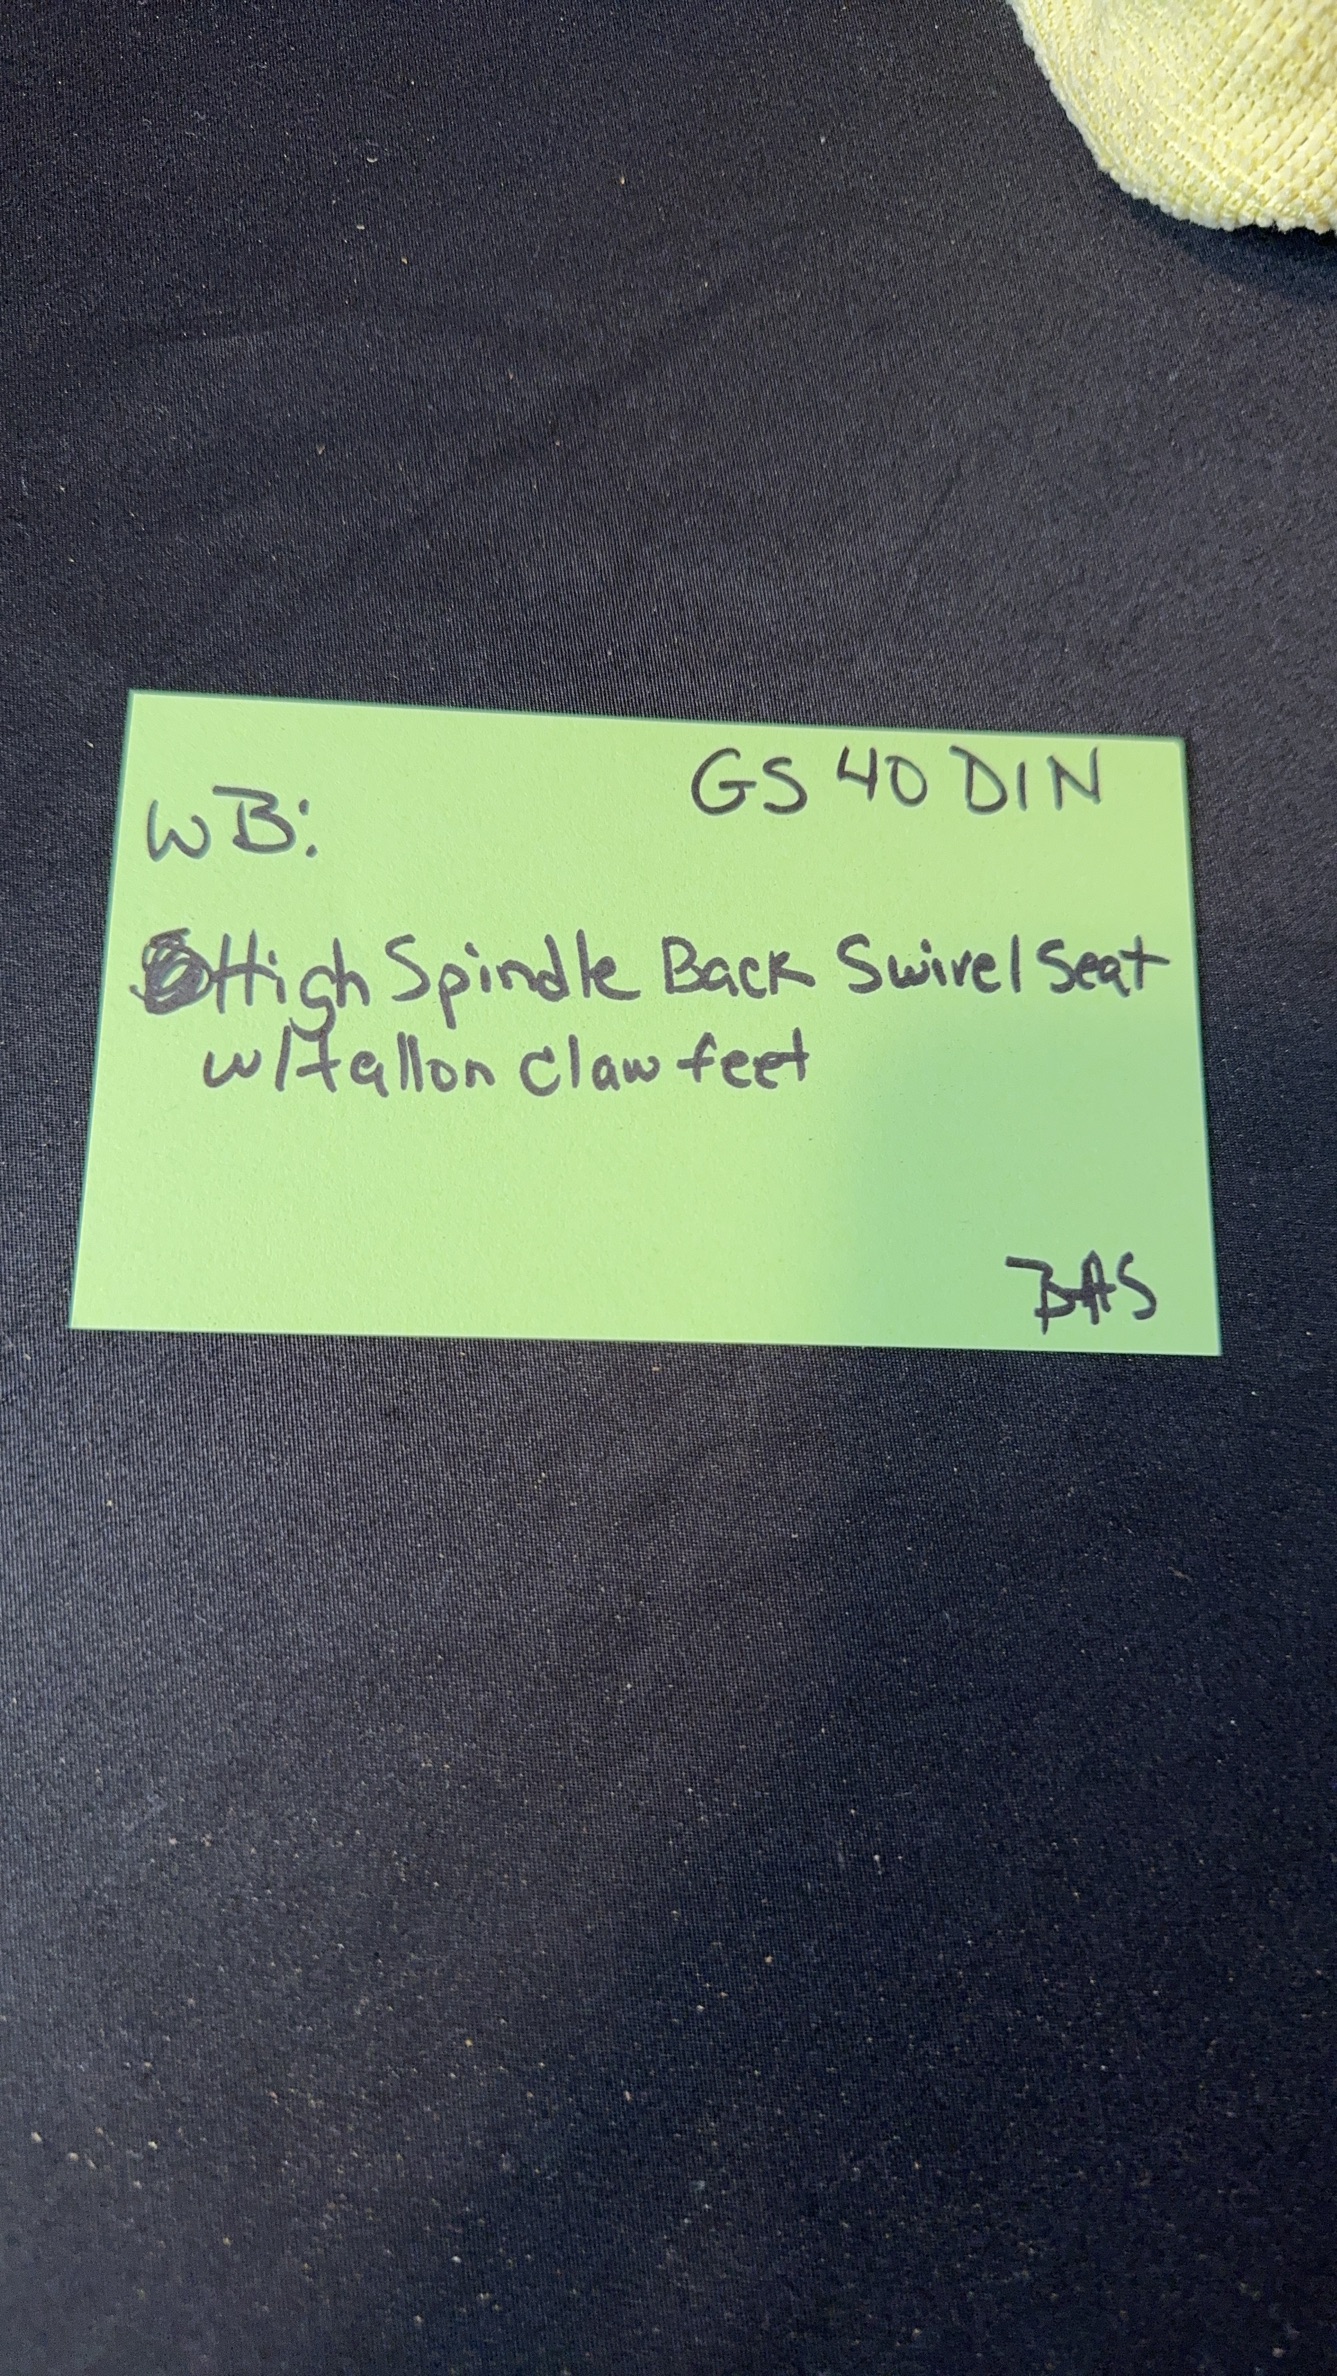 GS 40 DIN
WB:
High Spindle Back Swivel Seat
w/tallon claw feet
BAS